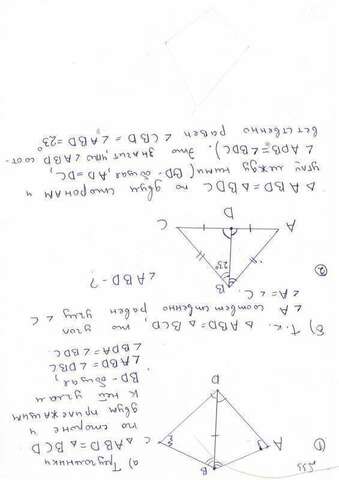 ①
а) Треугольники
△ABD = △BCD
по стороне и
двум прилежащим
к ней углам
BD - общая,
∠ABD = ∠DBC
∠BDA = ∠BDC
A
B
C
D
б) Т.к. △ABD = △BCD, то угол
∠A соответственно равен углу ∠C
∠A = ∠C.
②
∠ABD - ?
B
23°
A
D
C
△ABD = △BDC по двум сторонам и
углу между ними (BD - общая, AD = DC,
∠ADB = ∠BDC). Это значит, что ∠ABD соот-
ветственно равен ∠CBD = ∠ABD = 23°